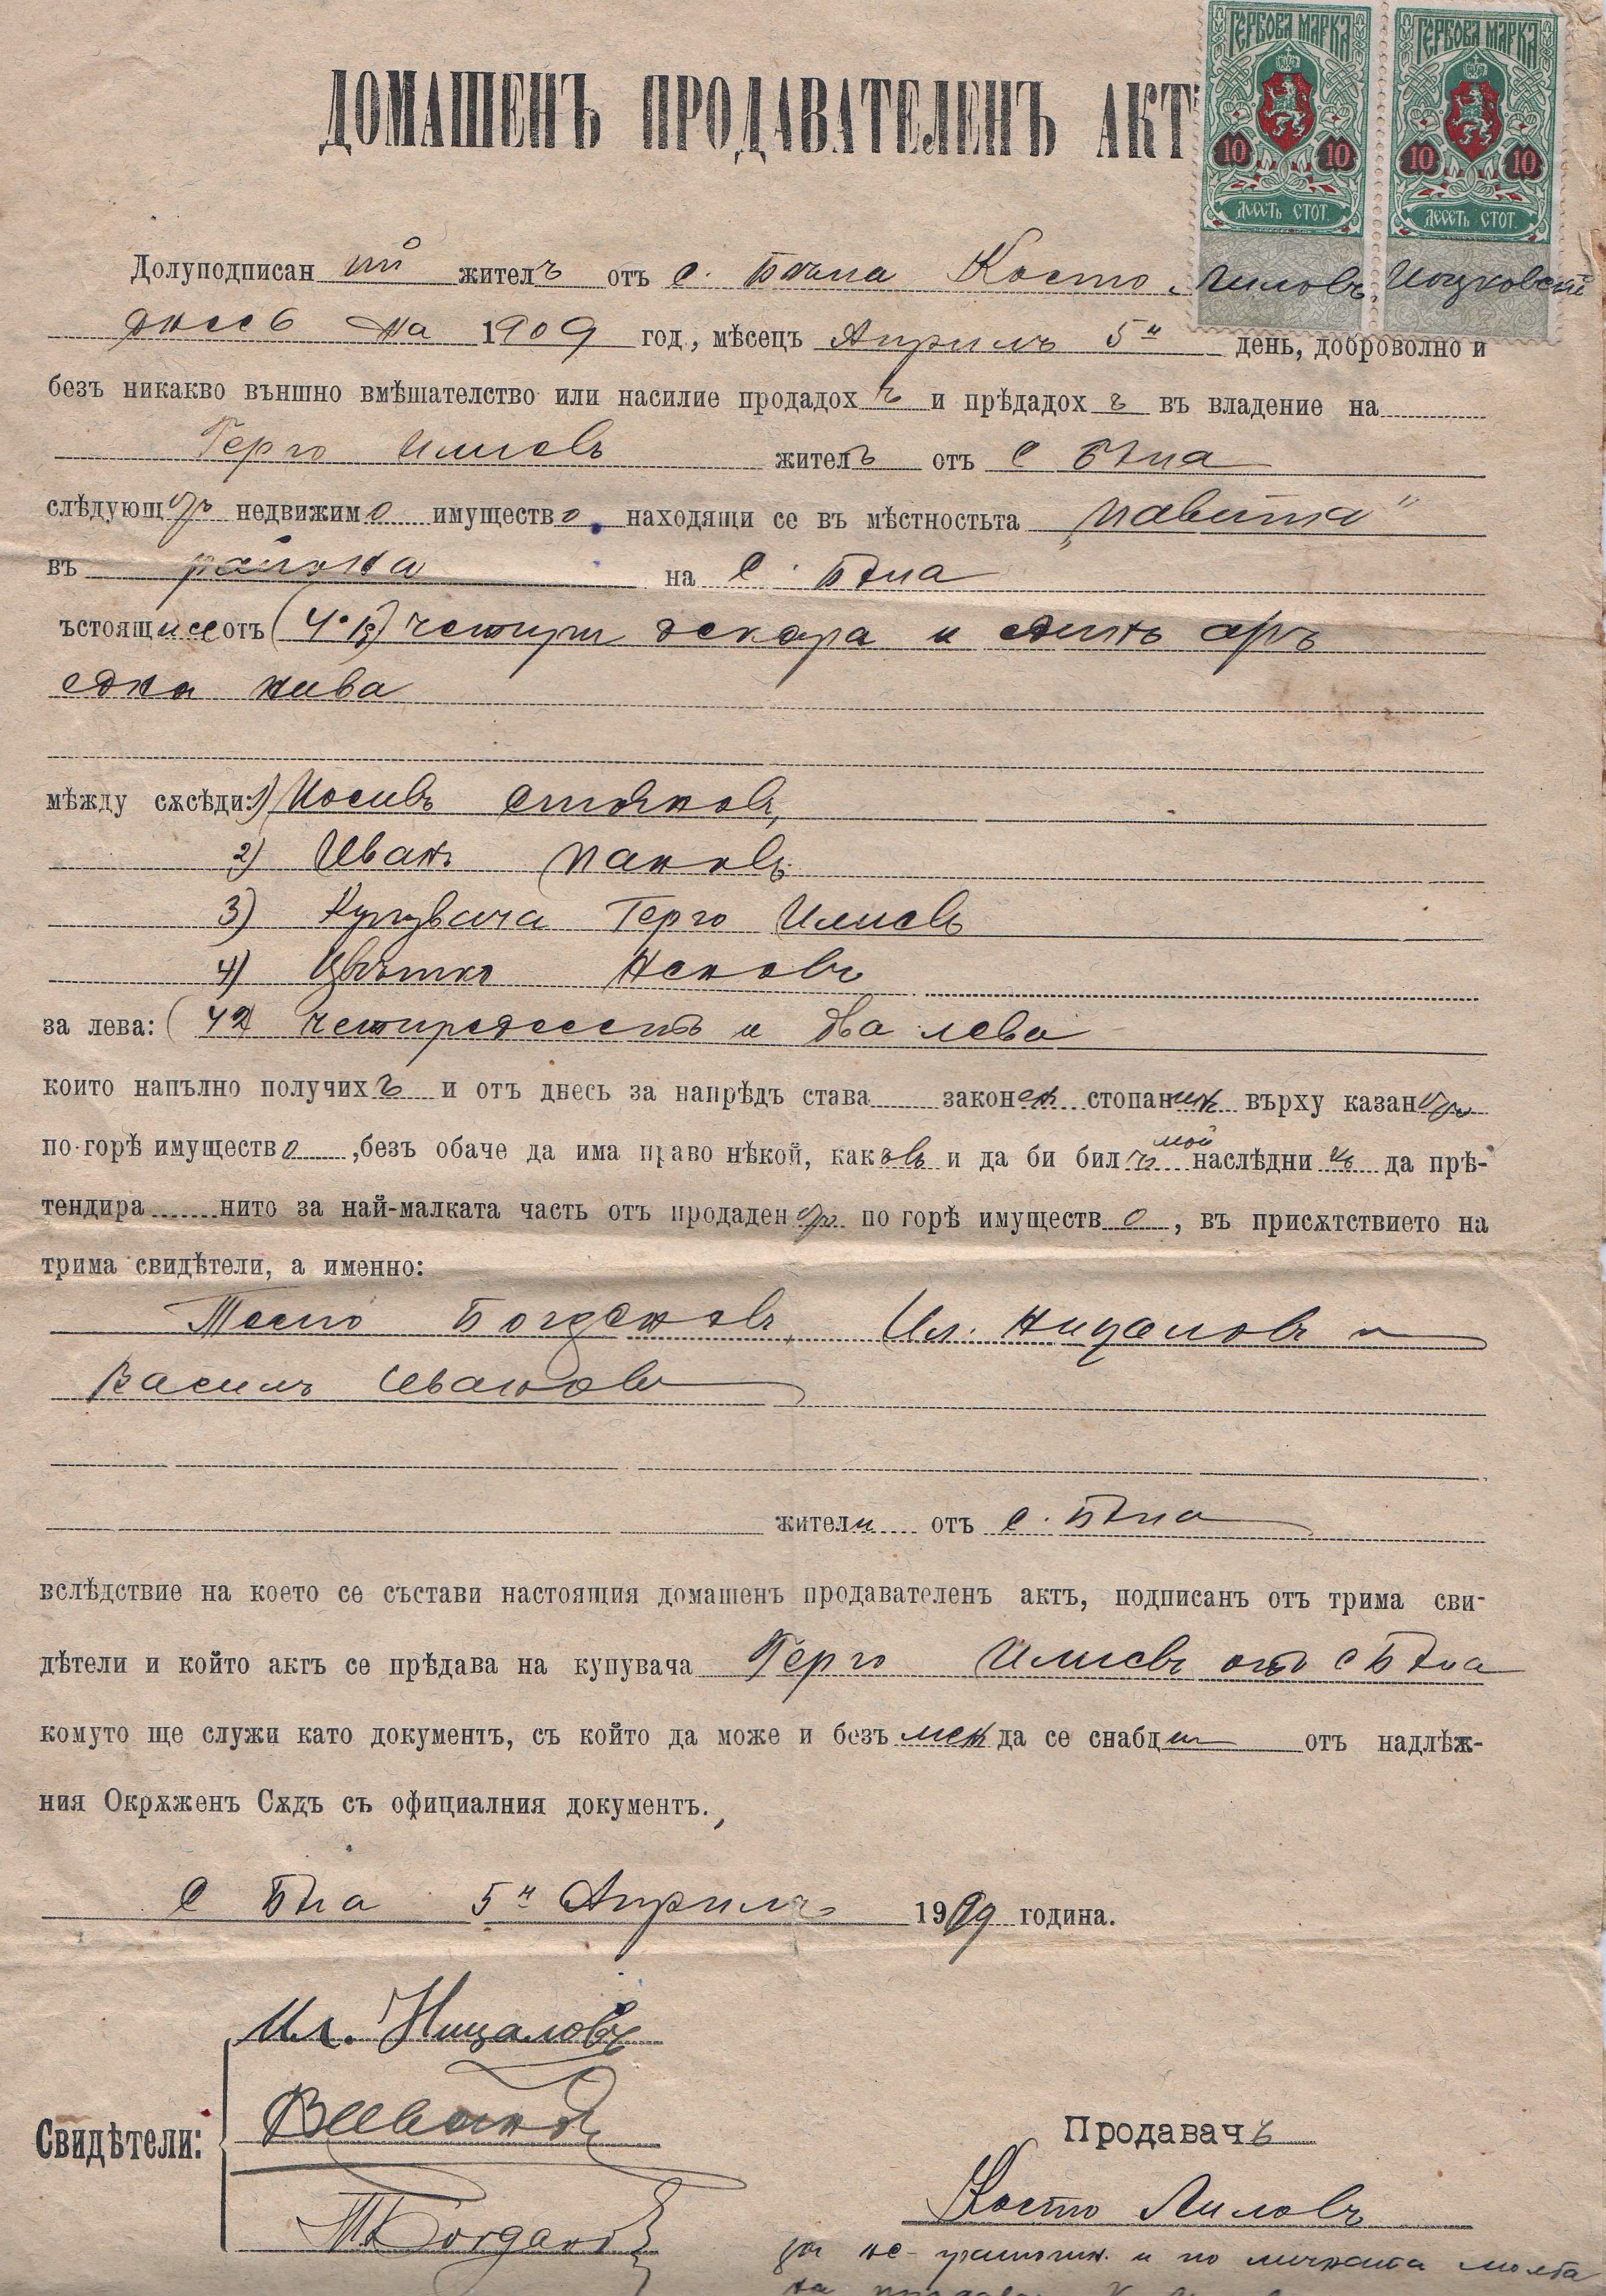 ГЕРБОВА МАРКА ГЕРБОВА МАРКА
10 10 10 10
ДЕСЕТЬ СТОТ. ДЕСЕТЬ СТОТ.
ДОМАШЕНЪ ПРОДАВАТЕЛЕНЪ АКТЪ
Долуподписан ий жителъ отъ с. Бѣла Косто Лиловъ
днесь на 1909 год., мѣсецъ Априлъ 5й день, доброволно и
безъ никакво външно вмѣшателство или насилие продадохъ и прѣдадохъ въ владение на
Герго Илиевъ жителъ отъ с Бѣла
слѣдующ недвижимо имущество, находящи се въ мѣстностьта
въ района на с. Бѣла
ъстоящи се отъ четири декара и единъ аръ
една нива
мѣжду сѫсѣди: 1) Иосивъ Стояновъ,
2) Иванъ Пановъ
3) Купувача Герго Илиевъ
4) Цвѣтко Неновъ
за лева: (42 четиредесеть и два лева
които напълно получихъ и отъ днесь за напрѣдъ става законен стопанин върху казан
по-горѣ имущество, безъ обаче да има право нѣкой, какъвъ и да би билъ мой наслѣдникъ да прѣ-
тендира нито за най-малката часть отъ продаден по горѣ имущество, въ присѫтствието на
трима свидѣтели, а именно:
Тошо Богдановъ, Ил. Ницоловъ и
Василъ Ивановъ
жители отъ с. Бѣла
вслѣдствие на което се състави настоящия домашенъ продавателенъ актъ, подписанъ отъ трима сви-
дѣтели и който актъ се прѣдава на купувача Герго Илиевъ отъ с Бѣла
комуто ще служи като документъ, съ който да може и безъ мен да се снабди отъ надлѣж-
ния Окрѫженъ Сѫдъ съ официалния документъ.
с Бѣла 5й Априлъ 1909 година.
Ил. Ницоловъ
ВИвановъ
Свидѣтели:
Продавачъ
ТБогдановъ
Косто Лиловъ
за не-грамотн. и по личната молба